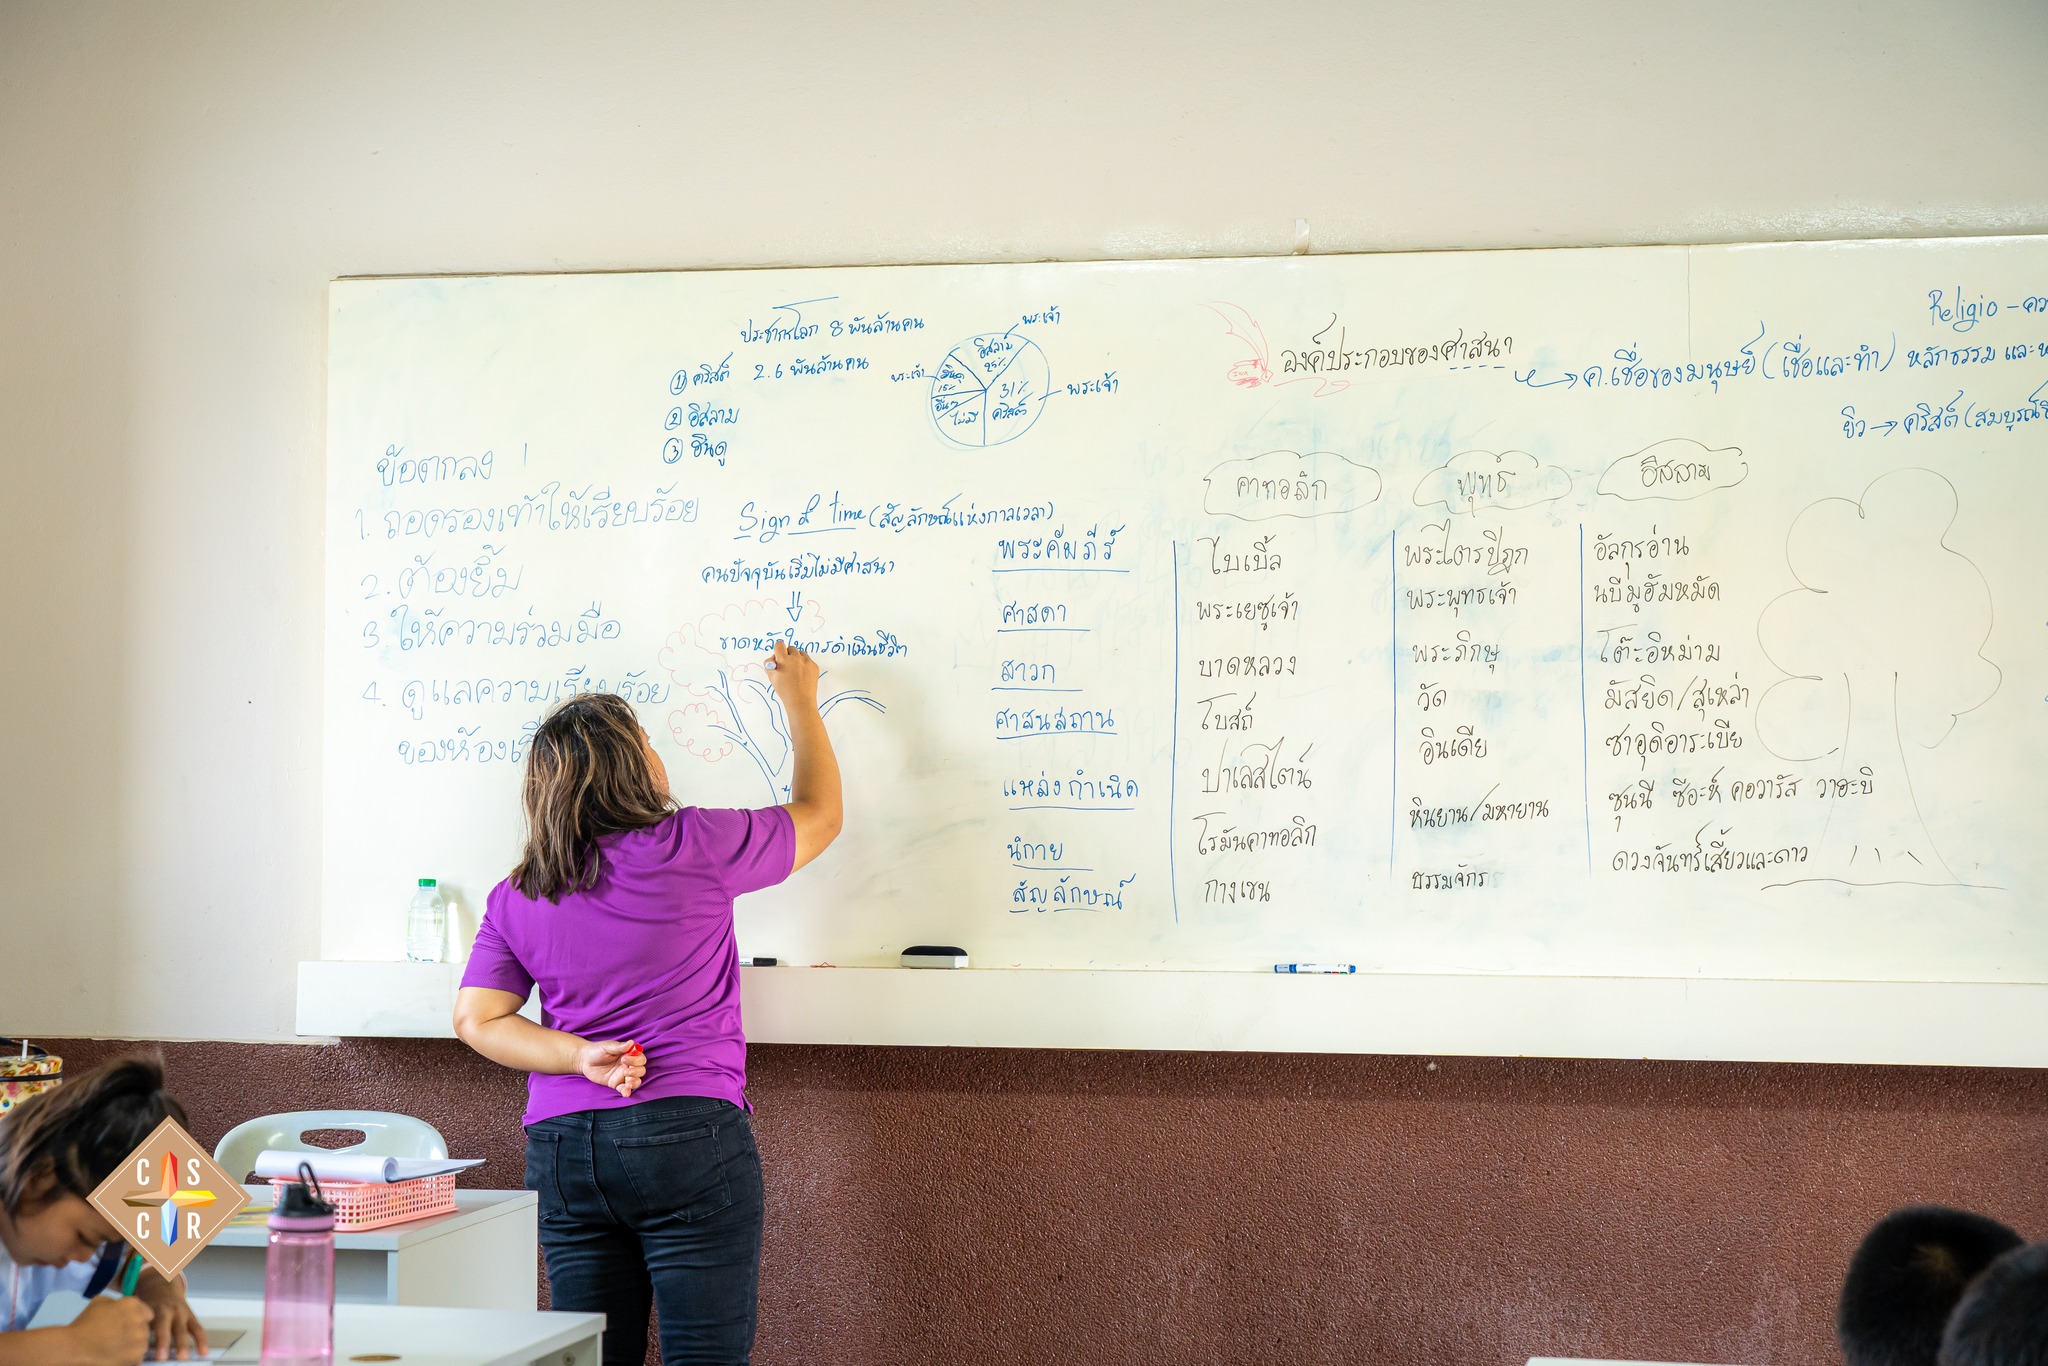 ประชากรโลก 8 พันล้านคน
① คริสต์ 2.6 พันล้านคน
② อิสลาม
③ ฮินดู
พระเจ้า
อิสลาม
25%
พระเจ้า
ฮินดู
15%
อื่นๆ
ไม่มี
31%
คริสต์
พระเจ้า
ข้อตกลง
1. ถอดรองเท้าให้เรียบร้อย
2. ต้องยิ้ม
3 ให้ความร่วมมือ
4. ดูแลความเรียบร้อย
ของห้อง
Sign of time (สัญลักษณ์แห่งกาลเวลา)
คนปัจจุบันเริ่มไม่มีศาสนา
ขาดหลักในการดำเนินชีวิต
องค์ประกอบของศาสนา
Religio -
→ ค.เชื่อของมนุษย์ (เชื่อและทำ) หลักธรรม และ
ยิว → คริสต์ (สมบูรณ์
คาทอลิก พุทธ อิสลาม
พระคัมภีร์ ไบเบิ้ล พระไตรปิฎก อัลกุรอ่าน
ศาสดา พระเยซูเจ้า พระพุทธเจ้า นบีมูฮัมหมัด
สาวก บาดหลวง พระภิกษุ โต๊ะอิหม่าม
ศาสนสถาน โบสถ์ วัด มัสยิด/สุเหล่า
แหล่งกำเนิด ปาเลสไตน์ อินเดีย ซาอุดิอาระเบีย
นิกาย โรมันคาทอลิก หินยาน/มหายาน ซุนนี ซีอะห์ คอวาริส วาฮะบี
สัญลักษณ์ กางเขน ธรรมจักร ดวงจันทร์เสี้ยวและดาว
C S
C R